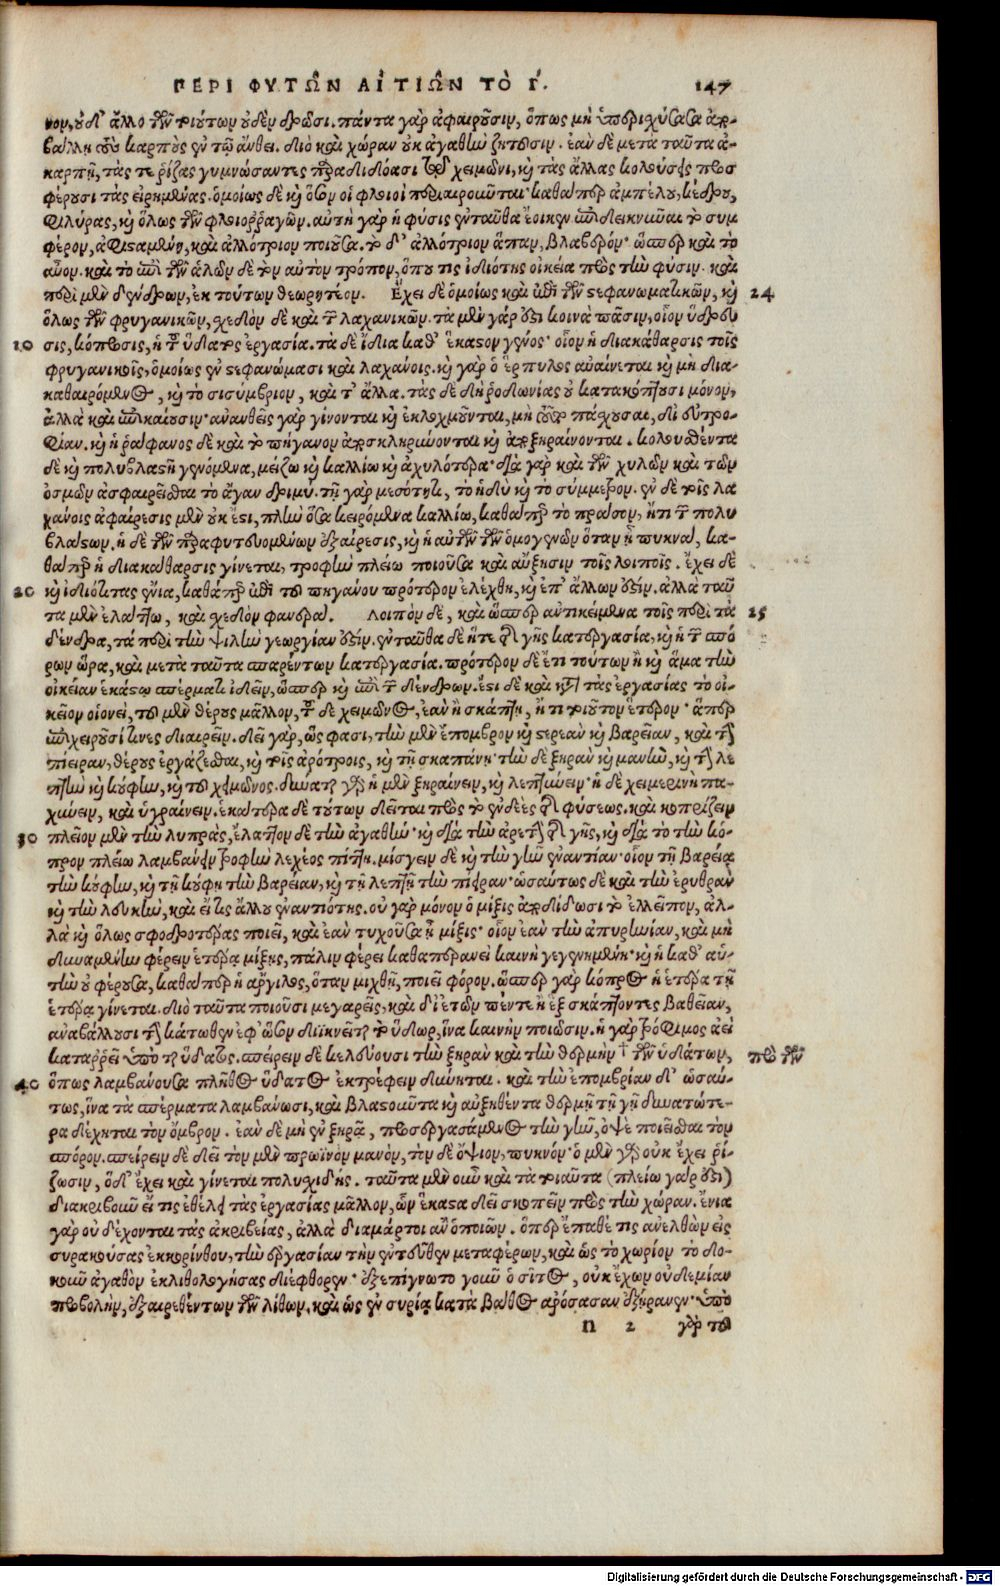 ΠΕΡΙ ΦΥΤΩ͂Ν ΑἸΤΙΩ͂Ν ΤῸ Γ΄. 147
καρπῇ, τάς τε ῥίζας γυμνώσαντες παραδιδόασι τῷ χειμῶνι, καὶ τὰς ἄλλας κολούσεις προσ-
φέρουσι τὰς εἰρημένας. ὁμοίως δὲ καὶ ὅσων οἱ φλοιοὶ περιαιροῦνται· καθάπερ ἀμπέλου, κέδρου,
φιλύρας, καὶ ὅλως τῶν φλοιορραγῶν. αὐτὴ γὰρ ἡ φύσις ἐνταῦθα ἔοικεν ὑποδεικνύναι τὸ συμ-
φέρον, ἀφισαμένη, καὶ ἀλλότριον ποιοῦσα. τὸ δ' ἀλλότριον ἅπαν, βλαβερόν· ὥσπερ καὶ τὸ
αὖον. καὶ τὸ ἐπὶ τῶν ἁλῶν δὲ τὸν αὐτὸν τρόπον, ὅπου τις ἰδιότης οἰκεία πρὸς τὴν φύσιν. καὶ
περὶ μὲν δένδρων, ἐκ τούτων θεωρητέον. Ἔχει δὲ ὁμοίως καὶ ἐπὶ τῶν στεφανωματικῶν, καὶ 24
ὅλως τῶν φρυγανικῶν, σχεδὸν δὲ καὶ τῶν λαχανικῶν. τὰ μὲν γάρ ἐστι κοινὰ πᾶσιν, οἷον ὕδρευ
10 σις, κόπρωσις, ἡ τοῦ ὕδατος ἐργασία. τὰ δὲ ἴδια καθ' ἕκαστον γένος· οἷον ἡ διακάθαρσις τοῖς
φρυγανικοῖς, ὁμοίως ἐν στεφανώμασι καὶ λαχάνοις. καὶ γὰρ ὁ ἕρπυλος αὐαίνεται καὶ μὴ δια-
καθαιρόμενος, καὶ τὸ σισύμβριον, καὶ τ' ἄλλα. τὰς δὲ δὴ ῥοδωνίας οὐ κατακόπτουσι μόνον,
ἀλλὰ καὶ ἐπικαίουσιν· ἀνανθεῖς γὰρ γίνονται καὶ ἐκλοχμοῦνται, μὴ τοῦτο πάσχουσαι, δι' εὐτρο-
φίαν. καὶ ἡ ῥάφανος δὲ καὶ τὸ πήγανον ἀποσκληρύνονται καὶ ἀποξηραίνονται. κολουθέντα
δὲ καὶ πολυβλαστῆ γενόμενα, μείζω καὶ καλλίω καὶ ἀχυλότερα· διὰ γὰρ καὶ τῶν χυλῶν καὶ τῶν
ὀσμῶν ἀσφαιρεῖσθαι τὸ ἄγαν δριμύ. τῇ γὰρ μεσότητι, τὸ ἡδὺ καὶ τὸ σύμμετρον. ἐν δὲ τοῖς λα
χάνοις ἀφαίρεσις μὲν οὐκ ἔστι, πλὴν ὅσα κειρόμενα καλλίω, καθάπερ τὸ πράσον, ἤτι τῶν πολυ
βλάστων. ἡ δὲ τῶν παραφυτευομένων ἐξαίρεσις, καὶ ἡ αὐτῶν τῶν ὁμογενῶν ὅταν ᾖ πυκνά, κα-
θάπερ ἡ διακάθαρσις γίνεται, τροφὴν πλείω ποιοῦσα καὶ αὔξησιν τοῖς λοιποῖς. ἔχει δὲ
20 καὶ ἰδιότητας ἔνια, καθάπερ ἐπὶ τοῦ πηγάνου πρότερον ἐλέχθη, καὶ ἐπ' ἄλλων ἐστίν. ἀλλὰ ταῦ
τα μὲν ἐλάττω, καὶ σχεδὸν φανερά. Λοιπὸν δὲ, καὶ ὥσπερ ἀντικείμενα τοῖς περὶ τὰ 25
δένδρα, τὰ περὶ τὴν ψιλὴν γεωργίαν ἐστίν. ἐνταῦθα δὲ ἥτε τῆς γῆς κατεργασία, καὶ ἡ τῶν σπό
ρων ὥρα, καὶ μετὰ ταῦτα σπαρέντων κατεργασία. πρότερον δὲ ἔτι τούτων ἢ καὶ ἅμα τὴν
οἰκείαν ἑκάστῳ σπέρματι ἰδεῖν, ὥσπερ καὶ ἐπὶ τῶν δένδρων. ἔστι δὲ καὶ κατὰ τὰς ἐργασίας τὸ οἰ-
κεῖον οἱονεὶ, τοῦ μὲν θέρους μᾶλλον, τοῦ δὲ χειμῶνος, ἐὰν ἢ σκάπτῃ, ἤ τι τοιοῦτον ἕτερον· ἅπερ
ἐπιχειροῦσί τινες διαιρεῖν. δεῖ γὰρ, ὥς φασι, τὴν μὲν ἔπομβρον καὶ στερεὰν καὶ βαρεῖαν, καὶ τὴν
πίειραν, θέρους ἐργάζεσθαι, καὶ τοῖς ἀρότροις, καὶ τῇ σκαπάνῃ· τὴν δὲ ξηρὰν καὶ μανὴν, καὶ τὴν λε
πτὴν καὶ κούφην, καὶ τοῦ χειμῶνος. δύναται γὰρ ἡ μὲν ξηραίνειν, καὶ λεπτύνειν· ἡ δὲ χειμερινὴ πα-
χύνειν, καὶ ὑγραίνειν. ἑκατέρα δὲ τούτων δεῖται πρὸς τὸ ἐνδεὲς τῆς φύσεως. καὶ κοπρίζειν
30 πλεῖον μὲν τὴν λυπρὰν, ἔλαττον δὲ τὴν ἀγαθὴν· καὶ διὰ τὴν ἀρετὴν τῆς γῆς, καὶ διὰ τὸ τὴν κό-
τὴν κούφην, καὶ τῇ κούφῃ τὴν βαρεῖαν, καὶ τῇ λεπτῇ τὴν πίειραν· ὡσαύτως δὲ καὶ τὴν ἐρυθρὰν
καὶ τὴν λευκὴν, καὶ εἴ τις ἄλλου ἐναντιότης. οὐ γὰρ μόνον ὁ μίξις ἀποδίδωσι τὸ ἐλλεῖπον, ἀλ-
δυναμένην φέρειν ἑτέρᾳ μίξῃς, πάλιν φέρει καθαπερανεὶ καινὴ γεγενημένη· καὶ ἡ καθ' αὑ-
τὴν οὐ φέρουσα, καθάπερ ἡ ἄργιλος, ὅταν μιχθῇ, ποιεῖ φόρον. ὥσπερ γὰρ κόπρος ἡ ἑτέρα τῇ
ἑτέρᾳ γίνεται. διὸ ταῦτα ποιοῦσι μεγαρεῖς· καὶ δι' ἐτῶν πέντε ἢ ἓξ σκάπτοντες βαθεῖαν,
ἀναβάλλουσι τὴν κάτωθεν ἐφ' ὅσον διϊκνεῖται τὸ ὕδωρ, ἵνα καινὴν ποιῶσιν. ἡ γὰρ τρόφιμος ἀεὶ
καταρρεῖ ὑπὸ τοῦ ὕδατος. σπείρειν δὲ κελεύουσι τὴν ξηρὰν καὶ τὴν θερμὴν † τῶν ὑδάτων, πρὸ τῶν
40 ὅπως λαμβάνουσα πλῆθος ὕδατος ἐκτρέφειν δύνηται. καὶ τὴν ἐπομβρίαν δ' ὡσαύ-
τως, ἵνα τὰ σπέρματα λαμβάνωσι, καὶ βλαστοῦντα καὶ αὐξηθέντα θερμῇ τῇ γῇ δυνατώτε-
ρα δέχηται τὸν ὄμβρον. ἐὰν δὲ μὴ ἐν ξηρᾷ, προσεργασάμενος τὴν γῆν, ὀψὲ ποιεῖσθαι τὸν
σπόρον. σπείρειν δὲ δεῖ τὸν μὲν πρωϊνὸν μανὸν, τὸν δὲ ὄψιον, πυκνόν· ὁ μὲν γὰρ οὐκ ἔχει ῥί-
ζωσιν, ὁ δ' ἔχει καὶ γίνεται πολυχιδής. ταῦτα μὲν οὖν καὶ τὰ τοιαῦτα (πλείω γάρ ἐστι)
διακριβοῦν εἴ τις ἐθέλει τὰς ἐργασίας μᾶλλον, ὧν ἕκαστα δεῖ σκοπεῖν πρὸς τὴν χώραν. ἔνια
γὰρ οὐ δέχονται τὰς ἀκριβείας, ἀλλὰ διαμάρτοι ἂν ὁ ποιῶν. ὅπερ ἔπαθέ τις ἀνελθὼν εἰς
συρακούσας ἐκ κορίνθου, τὴν ἐργασίαν τὴν ἐντεῦθεν μεταφέρων, καὶ ὡς τὸ χωρίον τὸ δο-
κοῦν ἀγαθὸν ἐκλιθολογήσας διέφθορεν· ἐξεπίγνωτο γοῦν ὁ σῖτος, οὐκ ἔχων οὐδεμίαν
προβολὴν, ἐξαιρεθέντων τῶν λίθων. καὶ ὡς ἐν συρίᾳ κατὰ βάθος ἀρόσασαν ἐξήρανεν· ὑπὸ
n 2 γὰρ τοῦ
Digitalisierung gefördert durch die Deutsche Forschungsgemeinschaft - DFG